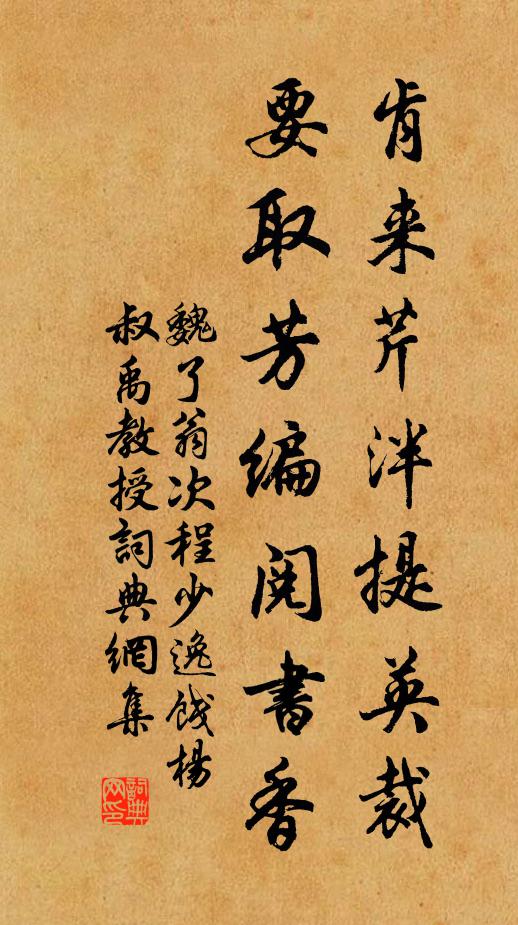 肯来芹泮提英裁
要取芳编阅書香
魏了翁次程少逸饯楊
叔禹教授詞典網集
詞典网印